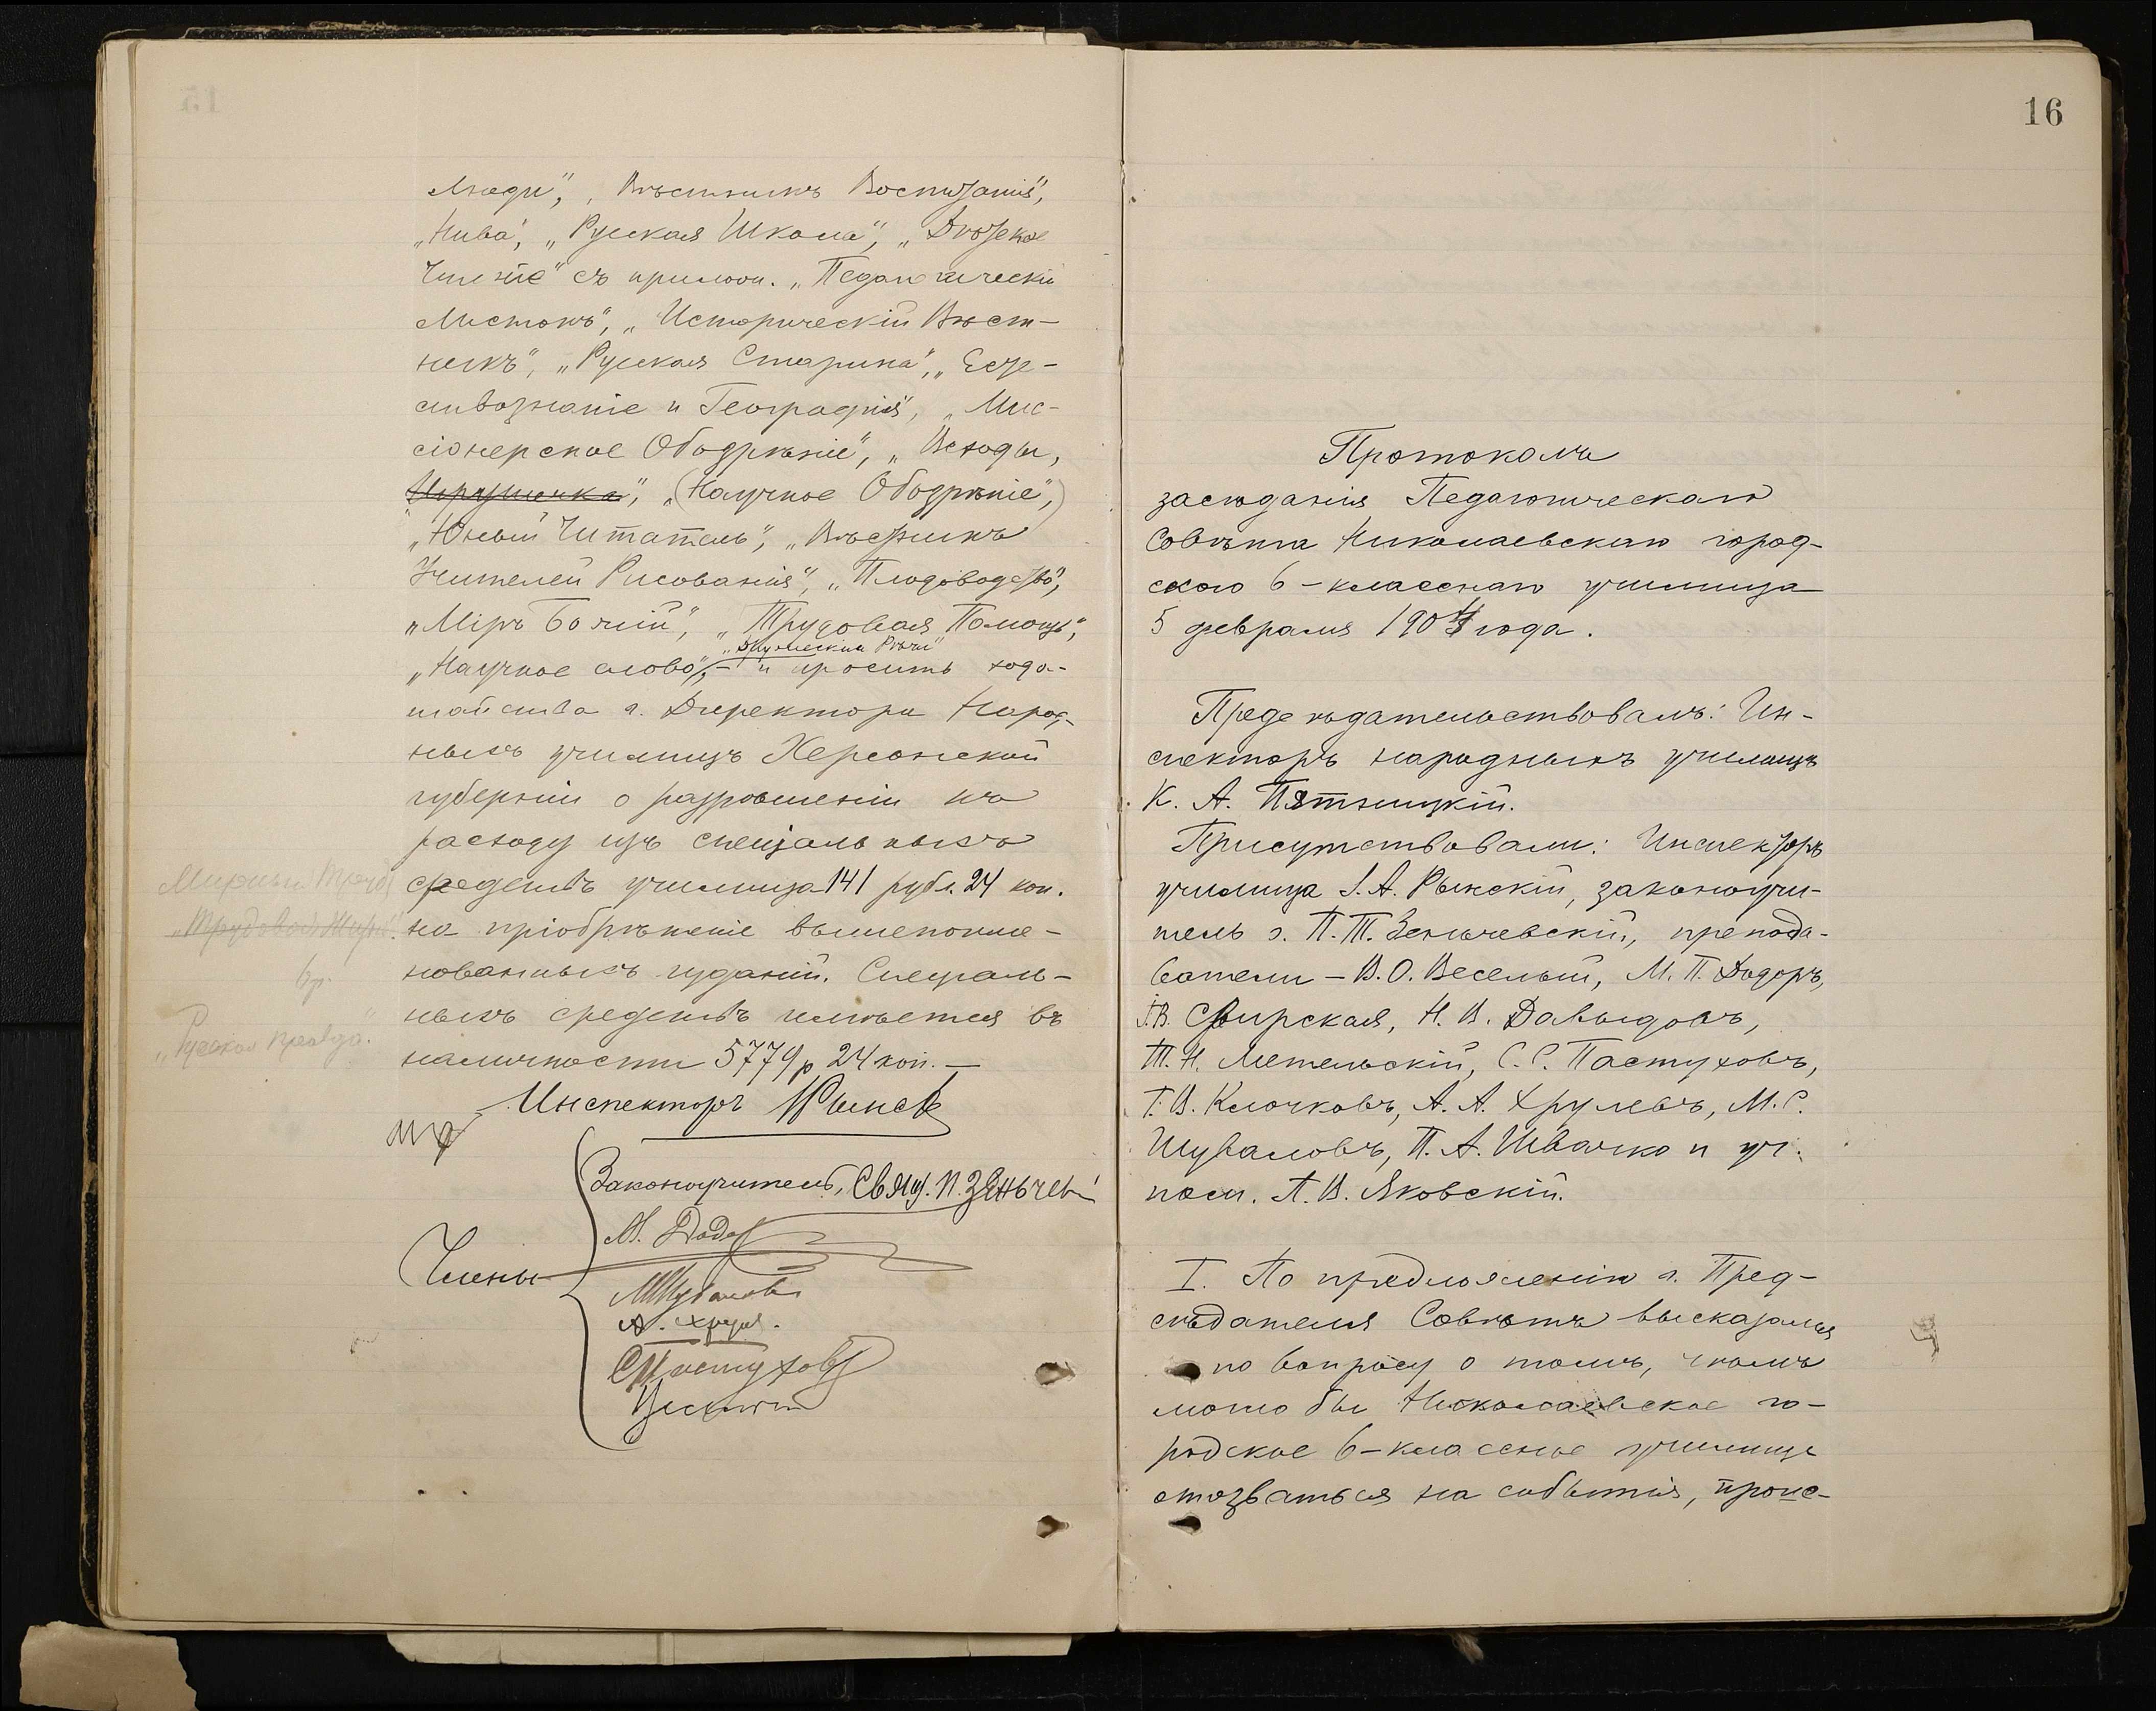 Люди", „Вѣстникъ Воспитанія",
„Нива", „Русская Школа", „Дѣтское
Чтеніе" съ прилож. „Педагогическій
Листокъ", „Историческій Вѣст-
никъ", „Русская Старина", „Есте-
ствознаніе и Географія", „Мис-
сіонерское Обозрѣніе", „Всходы",
„Игрушечка", („Научное Обозрѣніе",)
„Юный Читатель", „Вѣстникъ
Учителей Рисованія", „Плодоводство",
„Міръ Божій", „Трудовая Помощь",
„Научное слово", – и просить хода-
тайства г. Директора Народ-
ныхъ училищъ Херсонской
губерніи о разрѣшеніи къ
расходу изъ спеціальныхъ
средствъ училища 141 рубл. 24 коп.
на пріобрѣтеніе вышепоиме-
нованныхъ изданій. Спеціаль-
ныхъ средствъ имѣется въ
наличности 5779 р 24 коп. —
Мирный Трудъ
„Русская правда".
Инспекторъ Рынск
Законоучитель, Свящ. П. Зеньчев
М. Додо
Члены
МШувалов
А. Хрул.
СПастухов
16
Протоколъ
засѣданія Педагогическаго
Совѣта Николаевскаго город-
ского 6-класснаго училища
5 февраля 1904 года.
Предсѣдательствовалъ: Ин-
спекторъ народныхъ училищъ
К. А. Пятницкій.
Присутствовали: Инспекторъ
училища І. А. Рынскій, законоучи-
тель о. П. Т. Зеньчевскій, препода-
ватели – В. О. Веселый, М. П. Додоръ,
І. В. Свирская, Н. В. Давыдовъ,
Т. Н. Метельскій, С. С. Пастуховъ,
Г. В. Клочковъ, А. А. Хрулевъ, М. С.
Шуваловъ, П. А. Швачко и уч.
пом. А. В. Яковскій.
I. По предложенію г. Пред-
сѣдателя Совѣтъ высказался
по вопросу о томъ, чѣмъ
могло бы Николаевское го-
родское 6-классное училище
отозваться на событія, проис-